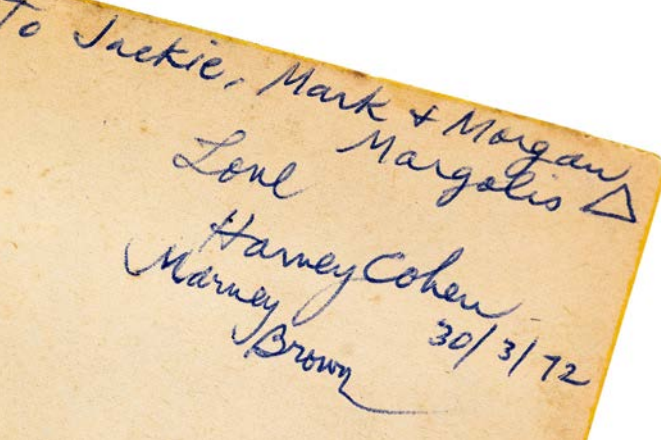 To Jackie, Mark & Morgan
Margolis △
Love
Harvey Cohen
Marney
Brown
30/3/72